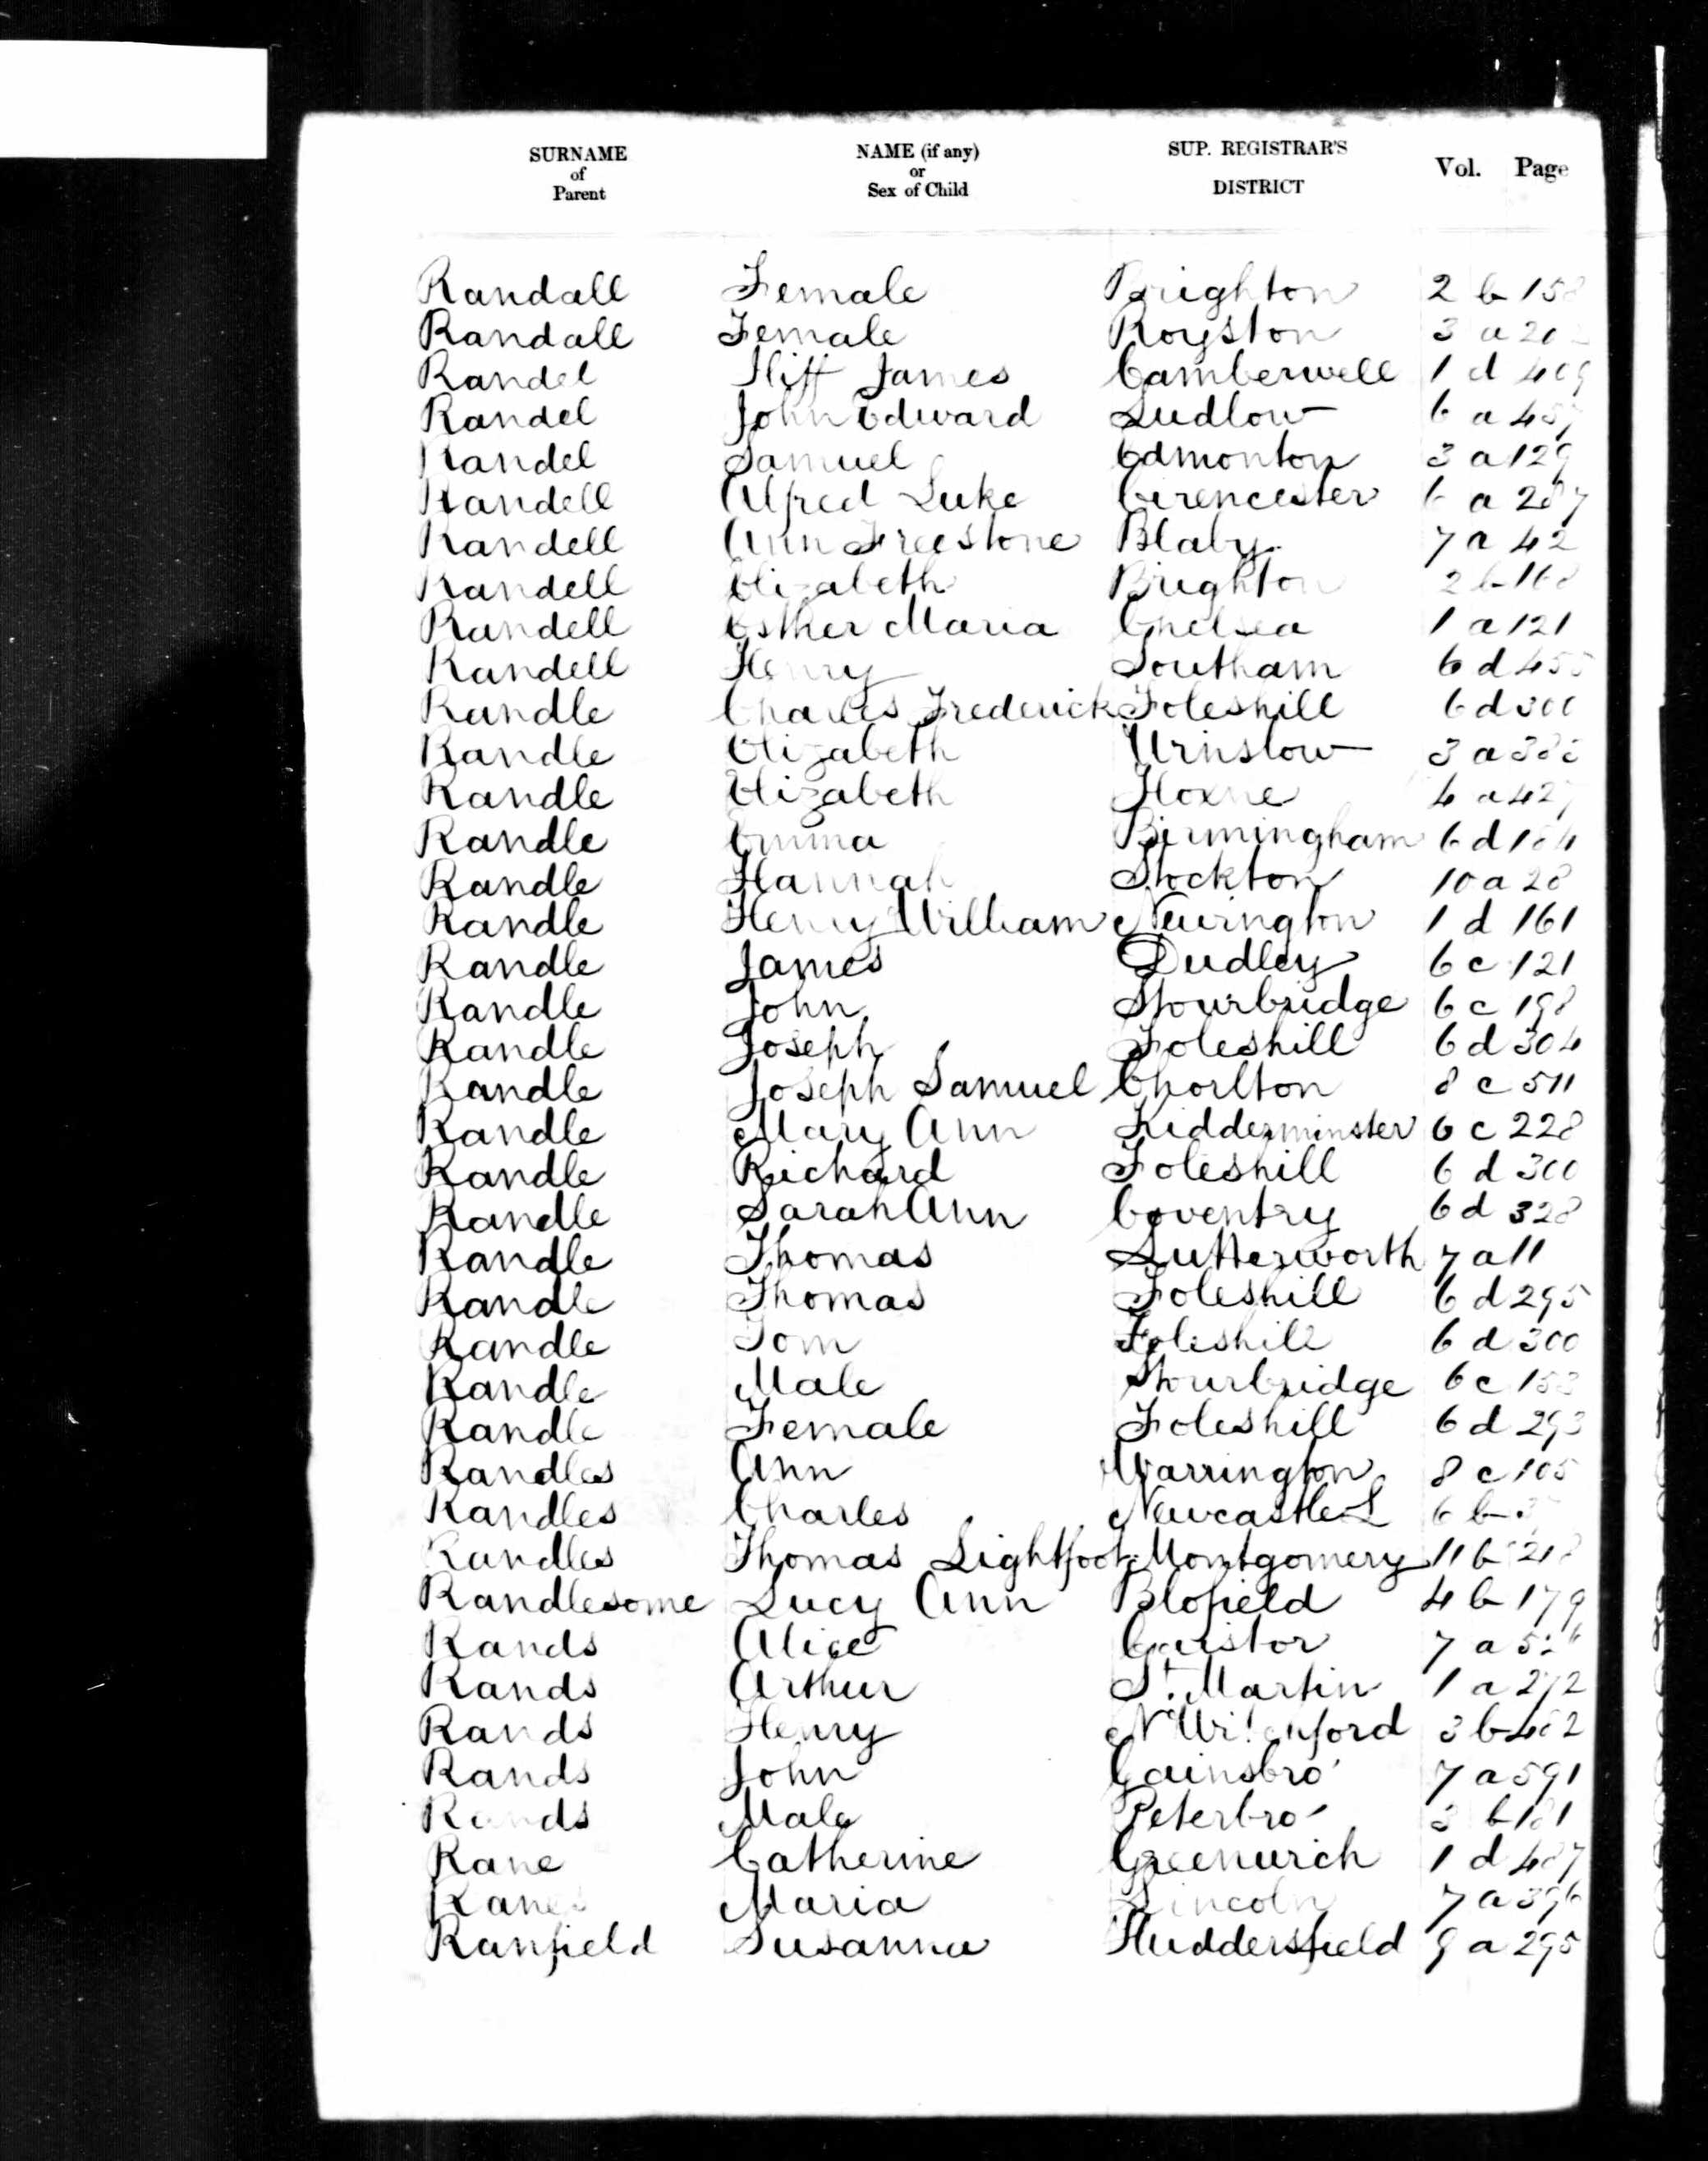 SURNAME of Parent NAME (if any) or Sex of Child SUP. REGISTRAR'S DISTRICT Vol. Page
Randall Female Brighton 2 b 158
Randall Female Royston 3 a
Randel Iliff James Camberwell 1 d 409
Randel John Edward Ludlow 6 a
Randel Samuel Edmonton 3 a 129
Randell Alfred Luke Cirencester 6 a 287
Randell Ann Freestone Blaby 7 a 42
Randell Elizabeth Brighton 2 b 168
Randell Esther Maria Chelsea 1 a 121
Randell Henry Southam 6 d 455
Randle Charles Frederick Foleshill 6 d 300
Randle Elizabeth Winslow 3 a
Randle Elizabeth Hoxne 4 a 427
Randle Emma Birmingham 6 d
Randle Hannah Stockton 10 a 28
Randle Henry William Newington 1 d 161
Randle James Dudley 6 c 121
Randle John Stourbridge 6 c 198
Randle Joseph Foleshill 6 d 304
Randle Joseph Samuel Chorlton 8 c 511
Randle Mary Ann Kidderminster 6 c 228
Randle Richard Foleshill 6 d 300
Randle Sarah Ann Coventry 6 d 328
Randle Thomas Lutterworth 7 a 11
Randle Thomas Foleshill 6 d 295
Randle Tom Foleshill 6 d 300
Randle Male Stourbridge 6 c 153
Randle Female Foleshill 6 d 293
Randles Ann Warrington 8 c 105
Randles Charles Newcastle L 6 b
Randles Thomas Lightfoot Montgomery 11 b 218
Randlesome Lucy Ann Blofield 4 b 179
Rands Alice Caistor 7 a
Rands Arthur St. Martin 1 a 272
Rands Henry N. Witchford 3 b
Rands John Gainsbro' 7 a 591
Rands Male Peterbro' 3 b 181
Rane Catherine Greenwich 1 d 487
Maria Lincoln 7 a 396
Ranfield Susanna Huddersfield 9 a 295